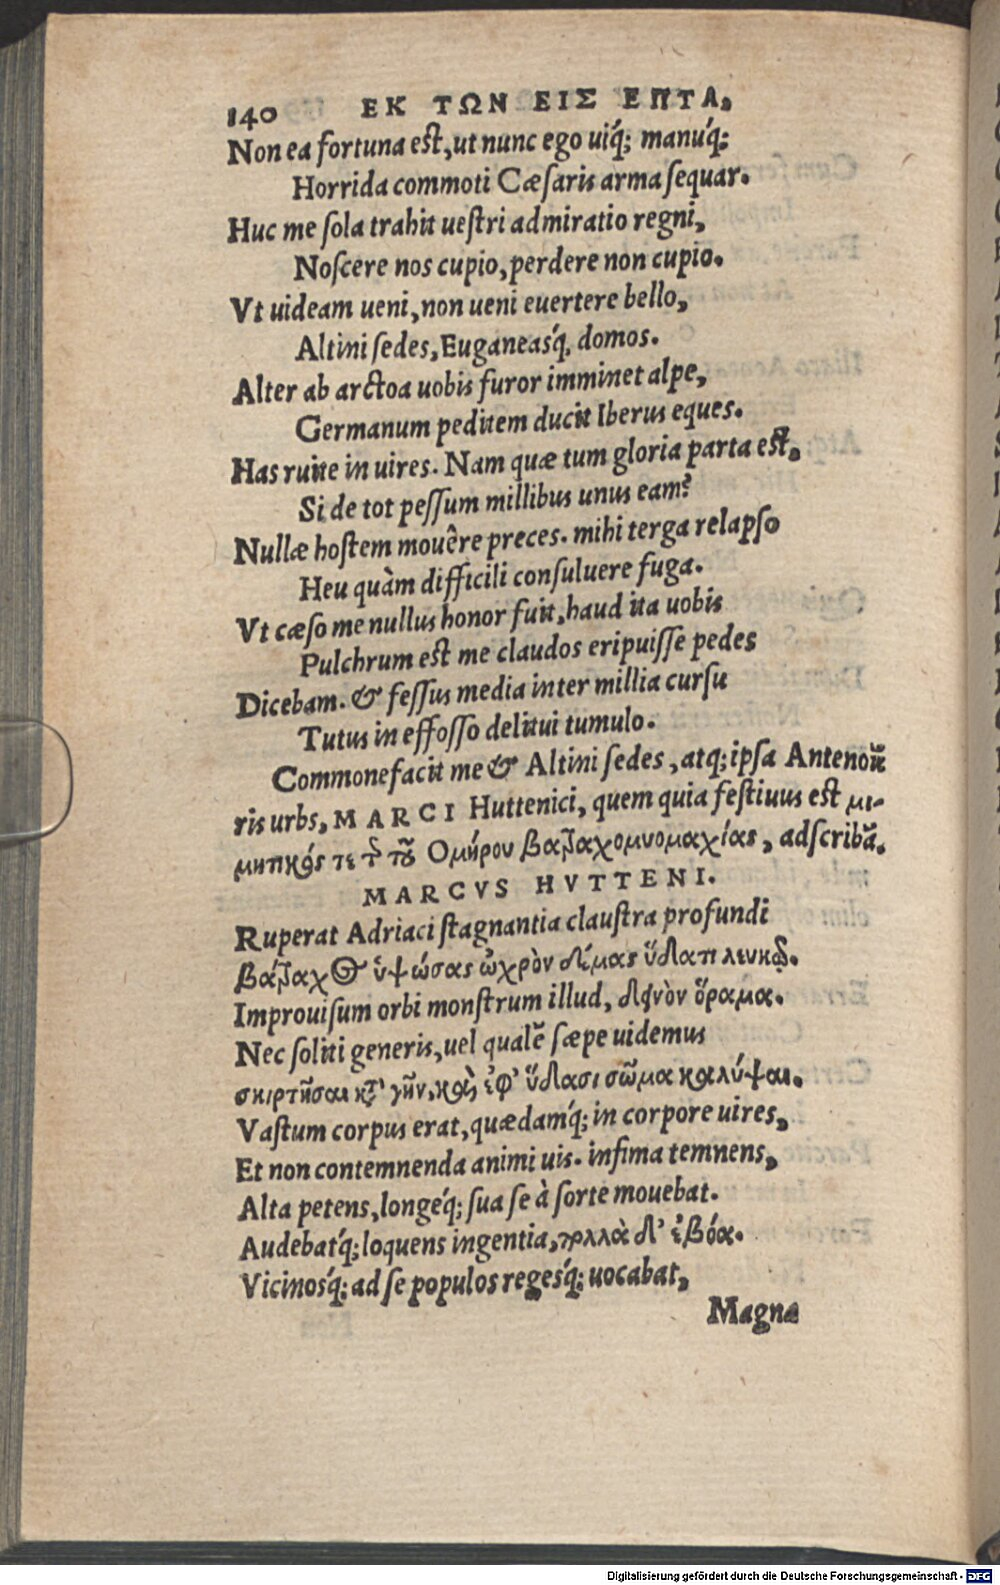 140 ΕΚ ΤΩΝ ΕΙΣ ΕΠΤΑ,
Non ea fortuna est, ut nunc ego uiq́; manuq́;
Horrida commoti Cæsaris arma sequar.
Huc me sola trahit uestri admiratio regni,
Noscere nos cupio, perdere non cupio.
Vt uideam ueni, non ueni euertere bello,
Altini sedes, Euganeasq́, domos.
Alter ab arctoa uobis furor imminet alpe,
Germanum peditem ducit Iberus eques.
Has ruite in uires. Nam quæ tum gloria parta est,
Si de tot pessum millibus unus eam?
Nullæ hostem mouêre preces. mihi terga relapso
Heu quàm difficili consuluere fuga.
Vt cæso me nullus honor fuit, haud ita uobis
Pulchrum est me claudos eripuisse pedes
Dicebam. & fessus media inter millia cursu
Tutus in effosso delitui tumulo.
Commonefacit me & Altini sedes, atq; ipsa Antenoũ
ris urbs, MARCI Huttenici, quem quia festiuus est μι-
μητικός τε τ̃ τȣ̃ Ομήρου βαβαχομυομαχίας, adscribã.
MARCVS HVTTENI.
Ruperat Adriaci stagnantia claustra profundi
βάβαχος ὑψώσας ὠχρὸν δέμας ὕδατι λευκῷ.
Improuisum orbi monstrum illud, δεινὸν ὅραμα.
Nec soliti generis, uel qualẽ sæpe uidemus
σκιρτῆσαι κτ̃ γῆν, καὶ ἐφ' ὕδασι σῶμα καλύψαι.
Vastum corpus erat, quædamq́; in corpore uires,
Et non contemnenda animi uis. infima temnens,
Alta petens, longeq́; sua se à sorte mouebat.
Audebatq́; loquens ingentia, πολλὰ δ' ἐβόα.
Vicinosq́; ad se populos regesq́; uocabat,
Magna
Digitalisierung gefördert durch die Deutsche Forschungsgemeinschaft - DFG